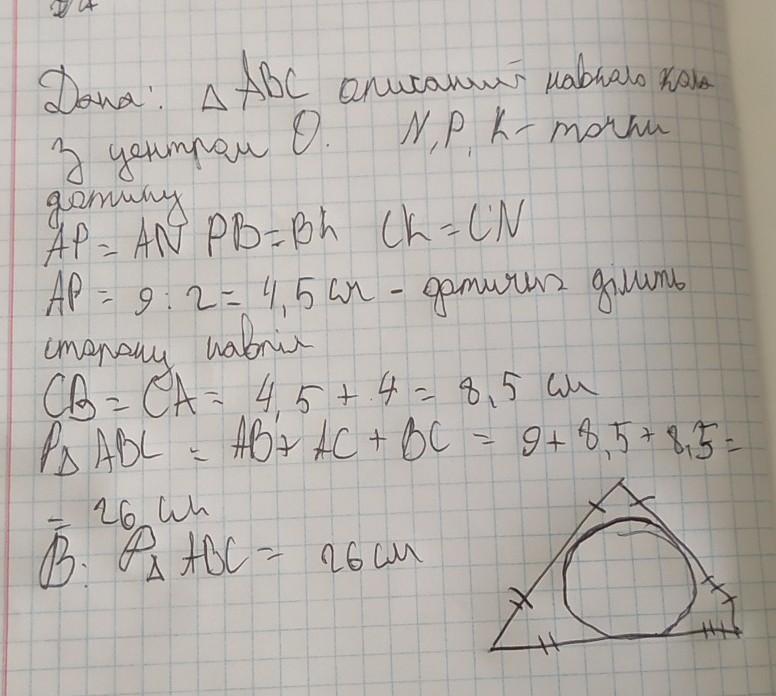 Дана: △ ABC описаний навколо кола
з центром O. N, P, K - точки
дотику
AP = AN PB = BK CK = CN
AP = 9 : 2 = 4,5 см - дотична ділить
сторону навпіл
CB = CA = 4,5 + 4 = 8,5 см
P△ ABC = AB + AC + BC = 9 + 8,5 + 8,5 =
= 26 см
В: P△ ABC = 26 см